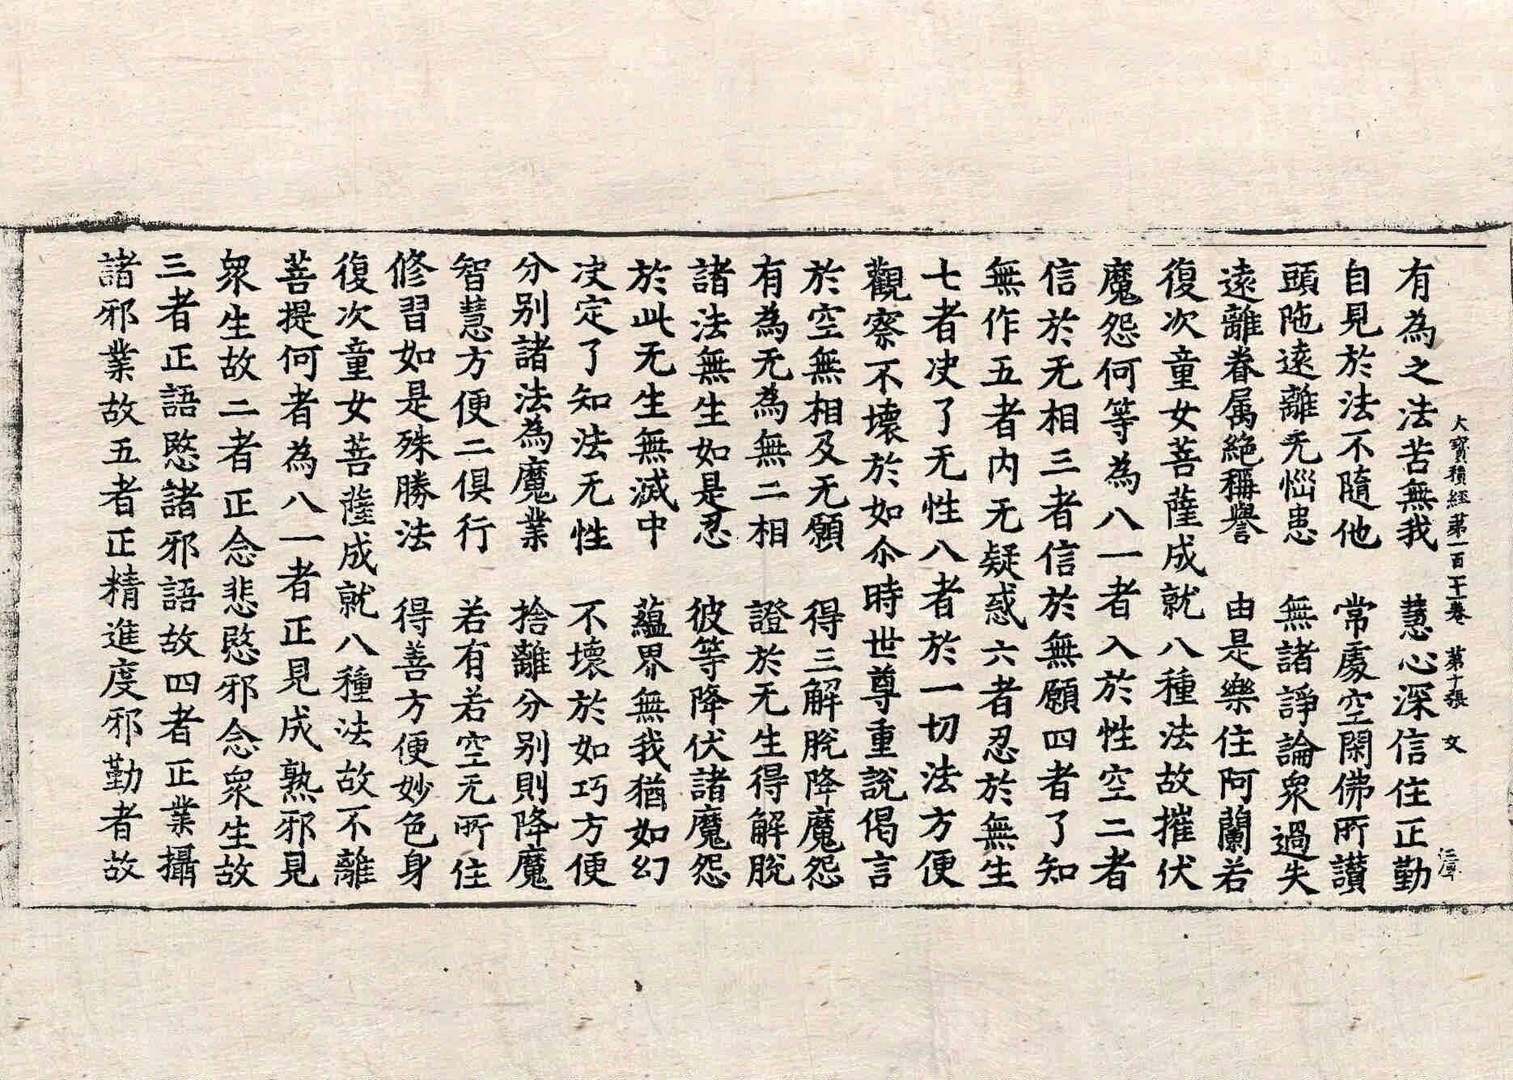 有為之法苦無我　慧心深信住正勤
大寶積經第一百一十一卷　第十張　文
自見於法不隨他　常處空閑佛所讚
頭陁遠離无惱患　無諸諍論衆過失
遠離眷属絶稱譽　由是樂住阿蘭若
復次童女菩薩成就八種法故摧伏
魔怨何等為八一者入於性空二者
信於无相三者信於無願四者了知
無作五者内无疑惑六者忍於無生
七者决了无性八者於一切法方便
觀察不壞於如尒時世尊重說偈言
於空無相及无願　得三解脫降魔怨
有為无為無二相　證於无生得解脫
諸法無生如是忍　彼等降伏諸魔怨
於此无生無滅中　蘊界無我猶如幻
决定了知法无性　不壞於如巧方便
分别諸法為魔業　捨離分别則降魔
智慧方便二俱行　若有若空无所住
修習如是殊勝法　得善方便妙色身
復次童女菩薩成就八種法故不離
菩提何者為八一者正見成熟邪見
衆生故二者正念悲愍邪念衆生故
三者正語愍諸邪語故四者正業攝
諸邪業故五者正精進度邪勤者故